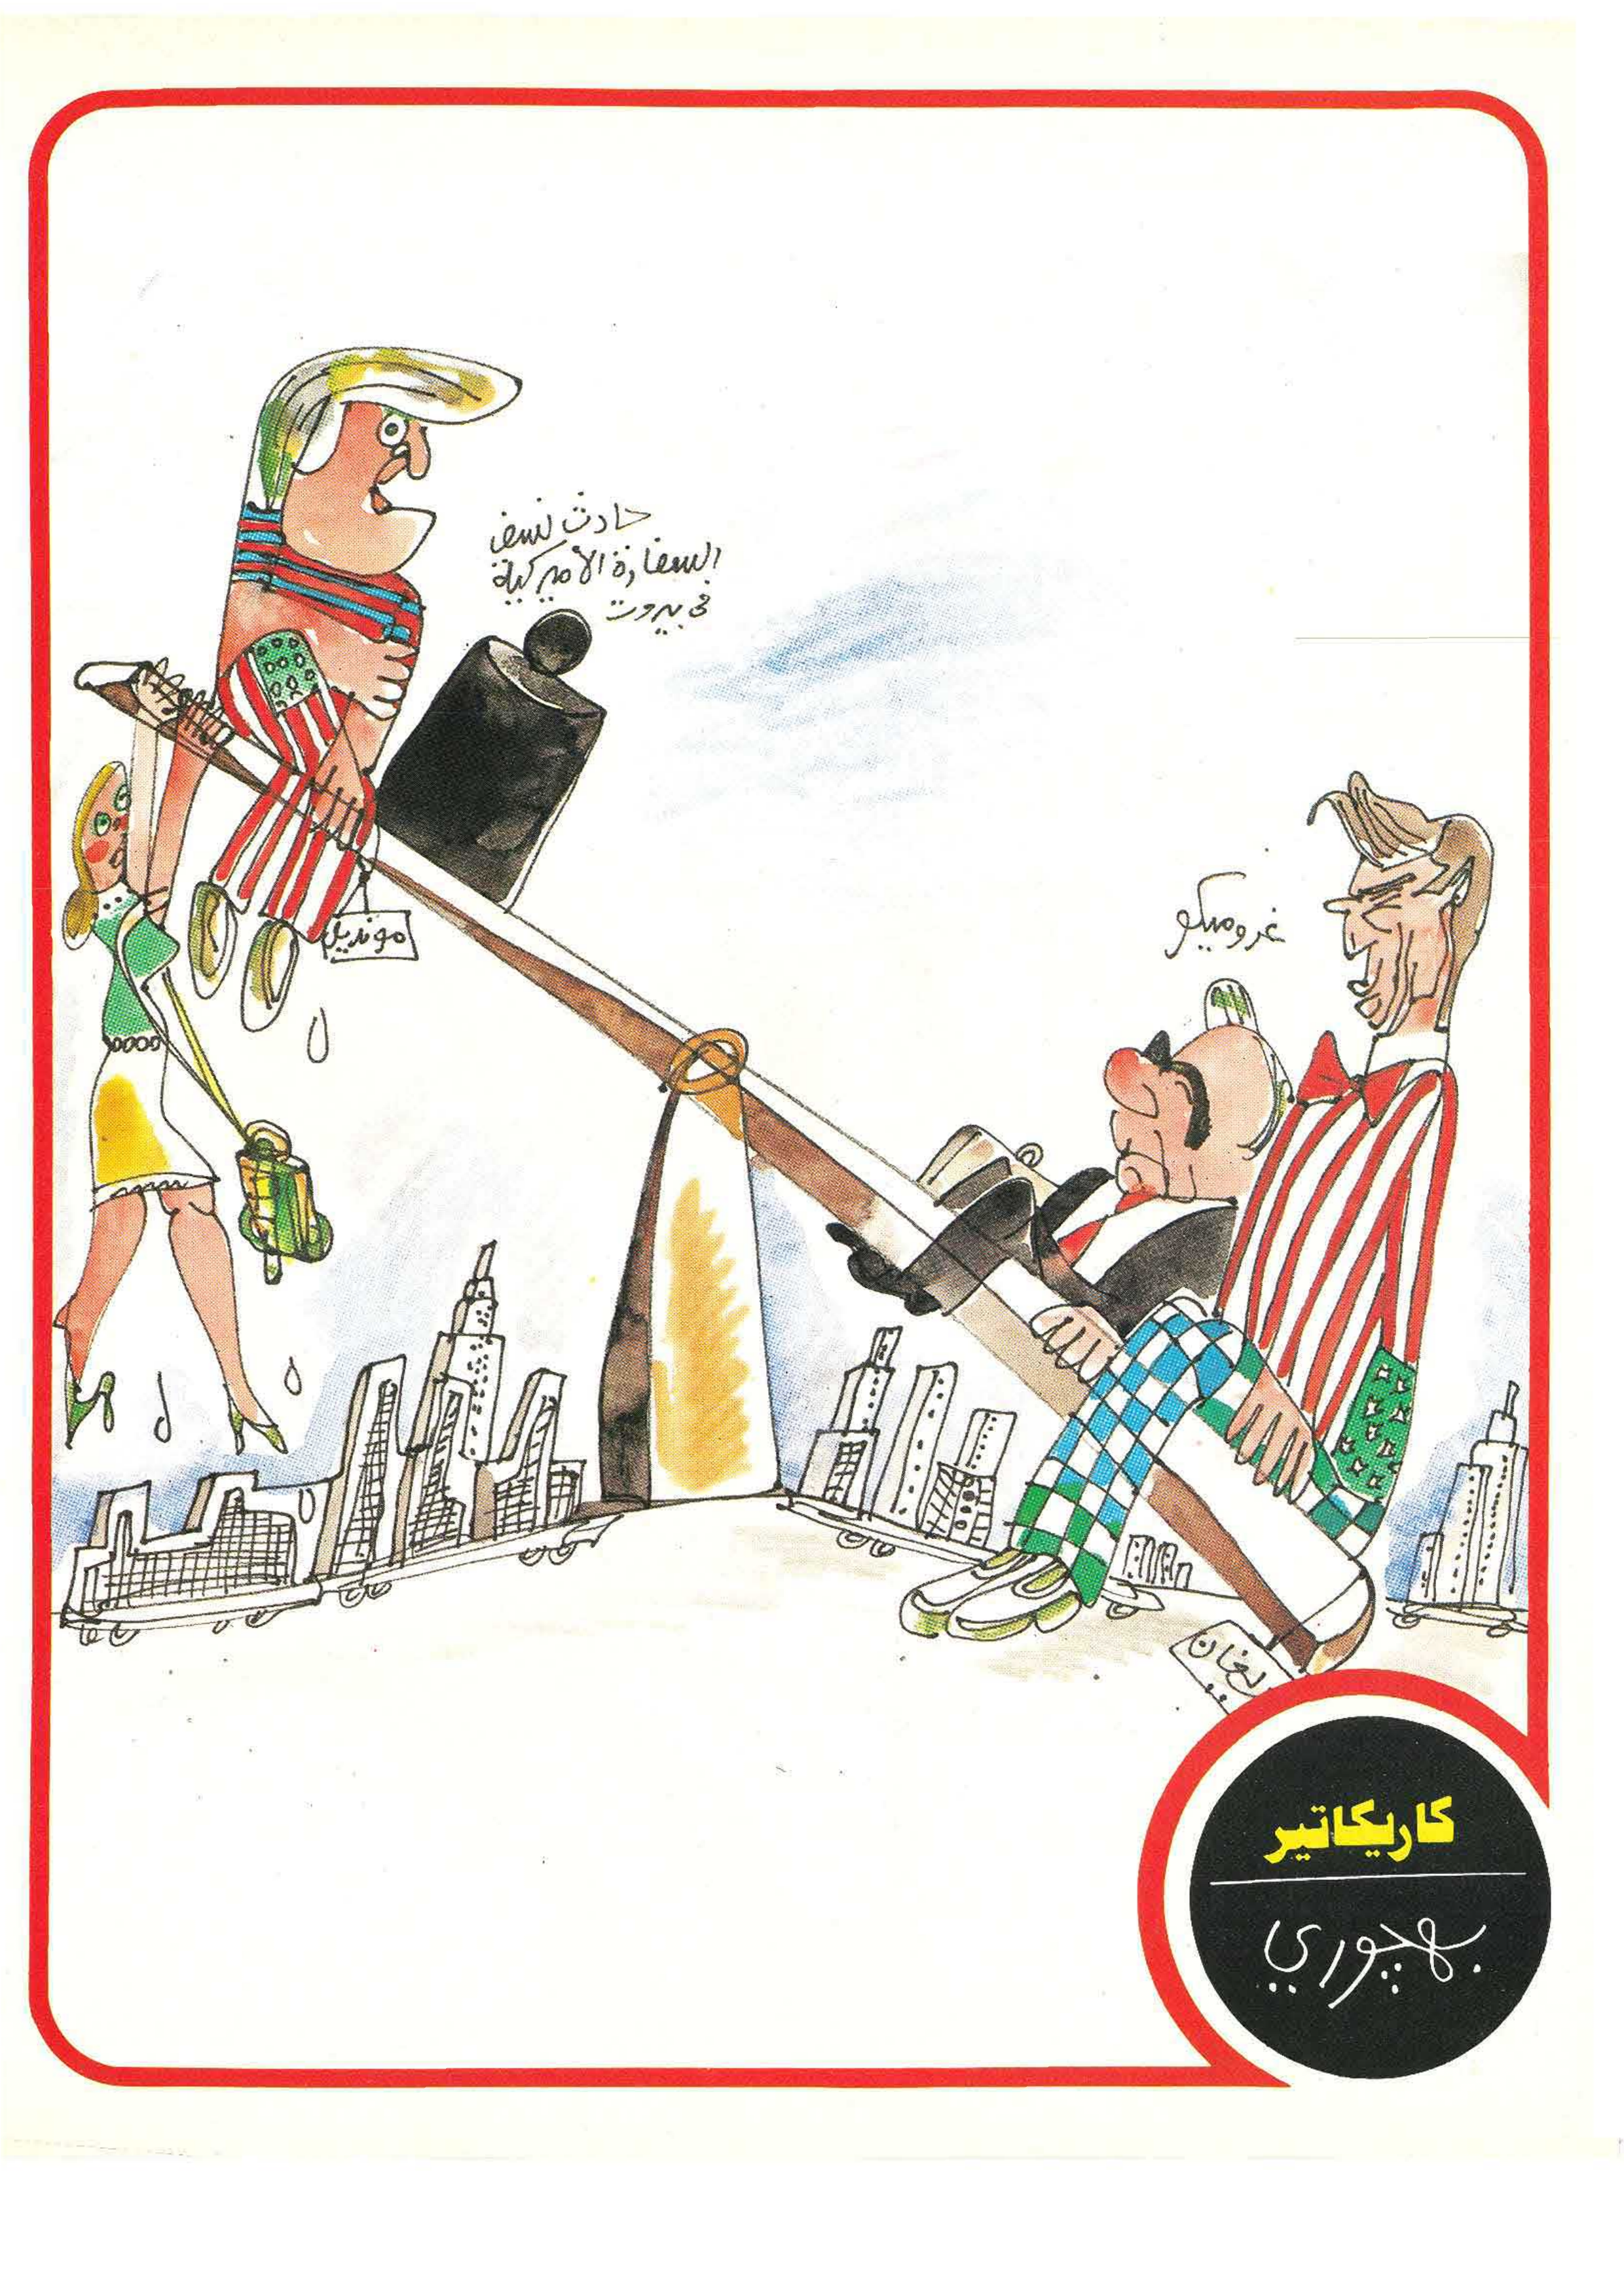 حادث نسف
السفارة الأميركية
في بيروت
مونديل
غروميكو
ريغان
كاريكاتير
بهجوري